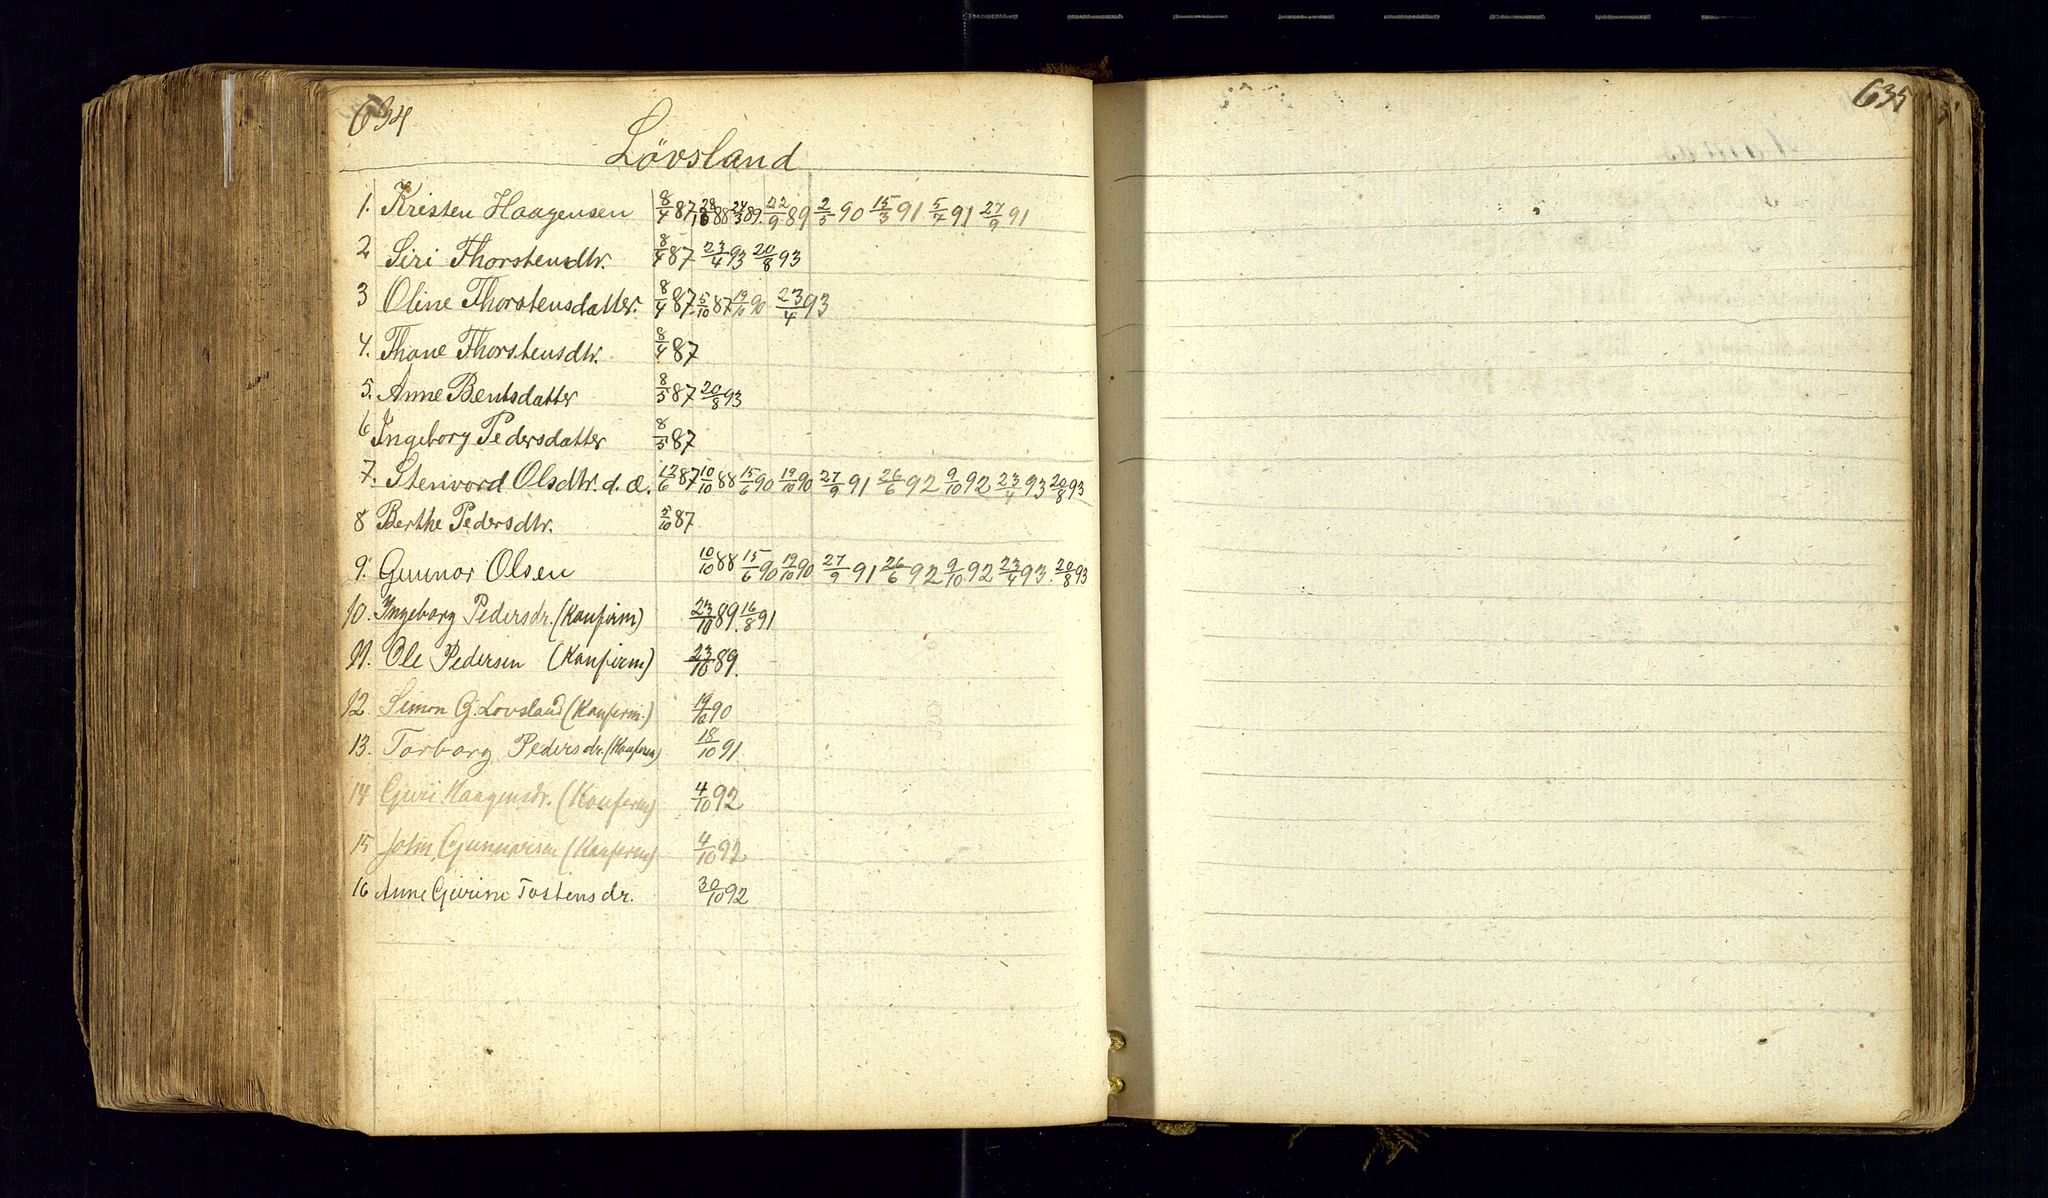 634
Lövsland
1. Kristen Haagensen 8/4 87 28/10 88 24/3 89 22/9 89 2/5 90 15/3 91 5/7 91 27/9 91
2 Siri Thorstensdtr. 8/4 87 23/4 93 20/8 93
3 Oline Thorstensdatter. 8/4 87 5/10 87 19/10 90 23/4 93
4. Thone Thorstensdtr. 8/4 87
5. Anne Bentsdatter 8/5 87 20/8 93
6 Ingeborg Pedersdatter 8/5 87
7. Stenvord Olsdtr. d. æ. 12/6 87 10/10 88 15/6 90 19/10 90 27/9 91 26/6 92 9/10 92 23/4 93 20/8 93
8 Berthe Pedersdtr. 5/10 87
9. Gunnar Olsen 10/10 88 15/6 90 19/10 90 27/9 91 26/6 92 9/10 92 23/4 93. 20/8 93
10. Ingeborg Pedersdr. (Konfirm) 23/10 89. 16/8 91
11. Ole Pedersen (Konfirm) 23/10 89.
12. Simon G. Lovsland (Konfirm.) 19/10 90
13. Torborg Pedersdr. (Konfirm) 18/10 91
14 Guri Haagensdr. (Konfirm) 4/10 92
15 John Gunnarsen (Konfirm) 4/10 92
16 Anne Gurine Tostensdr. 30/10 92
635